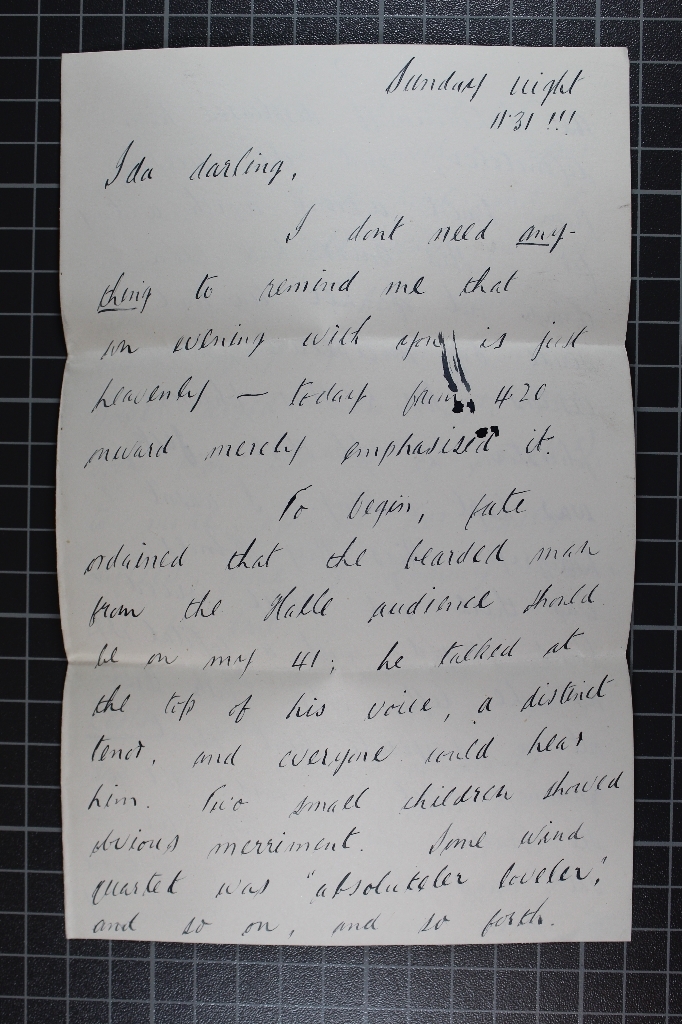 Sunday night
11.31 !!!
Ida darling,
I don't need any-
thing to remind me that
an evening with you is just
heavenly — today from 4.20
onward merely emphasised it.
To begin, fate
ordained that the bearded man
from the Halle audience should
be on my 41; he talked at
the top of his voice, a distinct
tenor, and everyone could hear
him. Two small children showed
obvious merriment. Some wind
quartet was "absoluteler loveler",
and so on, and so forth.